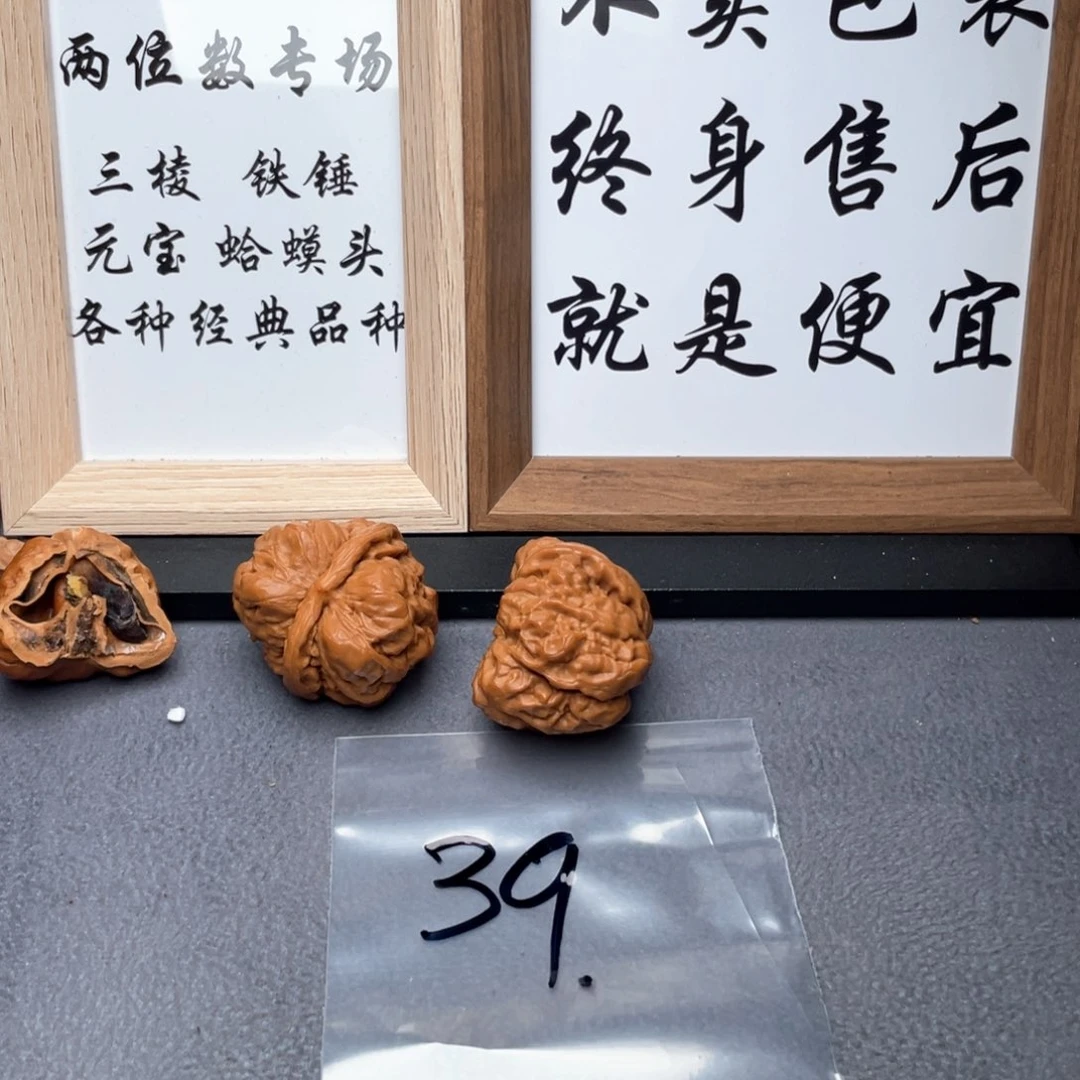 两位数专场
三棱 铁锤
元宝 蛤蟆头
各种经典品种
终身售后
就是便宜
39.